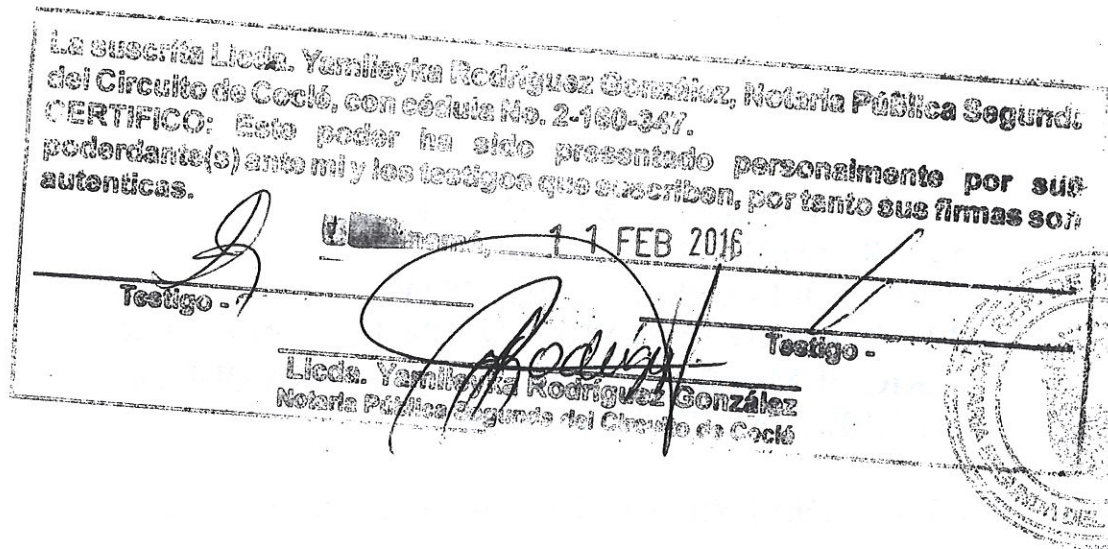 La suscrita Licda. Yamileyka Rodríguez González, Notaria Pública Segunda
del Circuito de Coclé, con cédula No. 2-160-347.
CERTIFICO: Este poder ha sido presentado personalmente por sus
poderdante(s) ante mi y los testigos que suscriben, por tanto sus firmas son
autenticas.
11 FEB 2016
Testigo - Testigo -
Licda. Yamileyka Rodríguez González
Notaria Pública Segunda del Circuito de Coclé